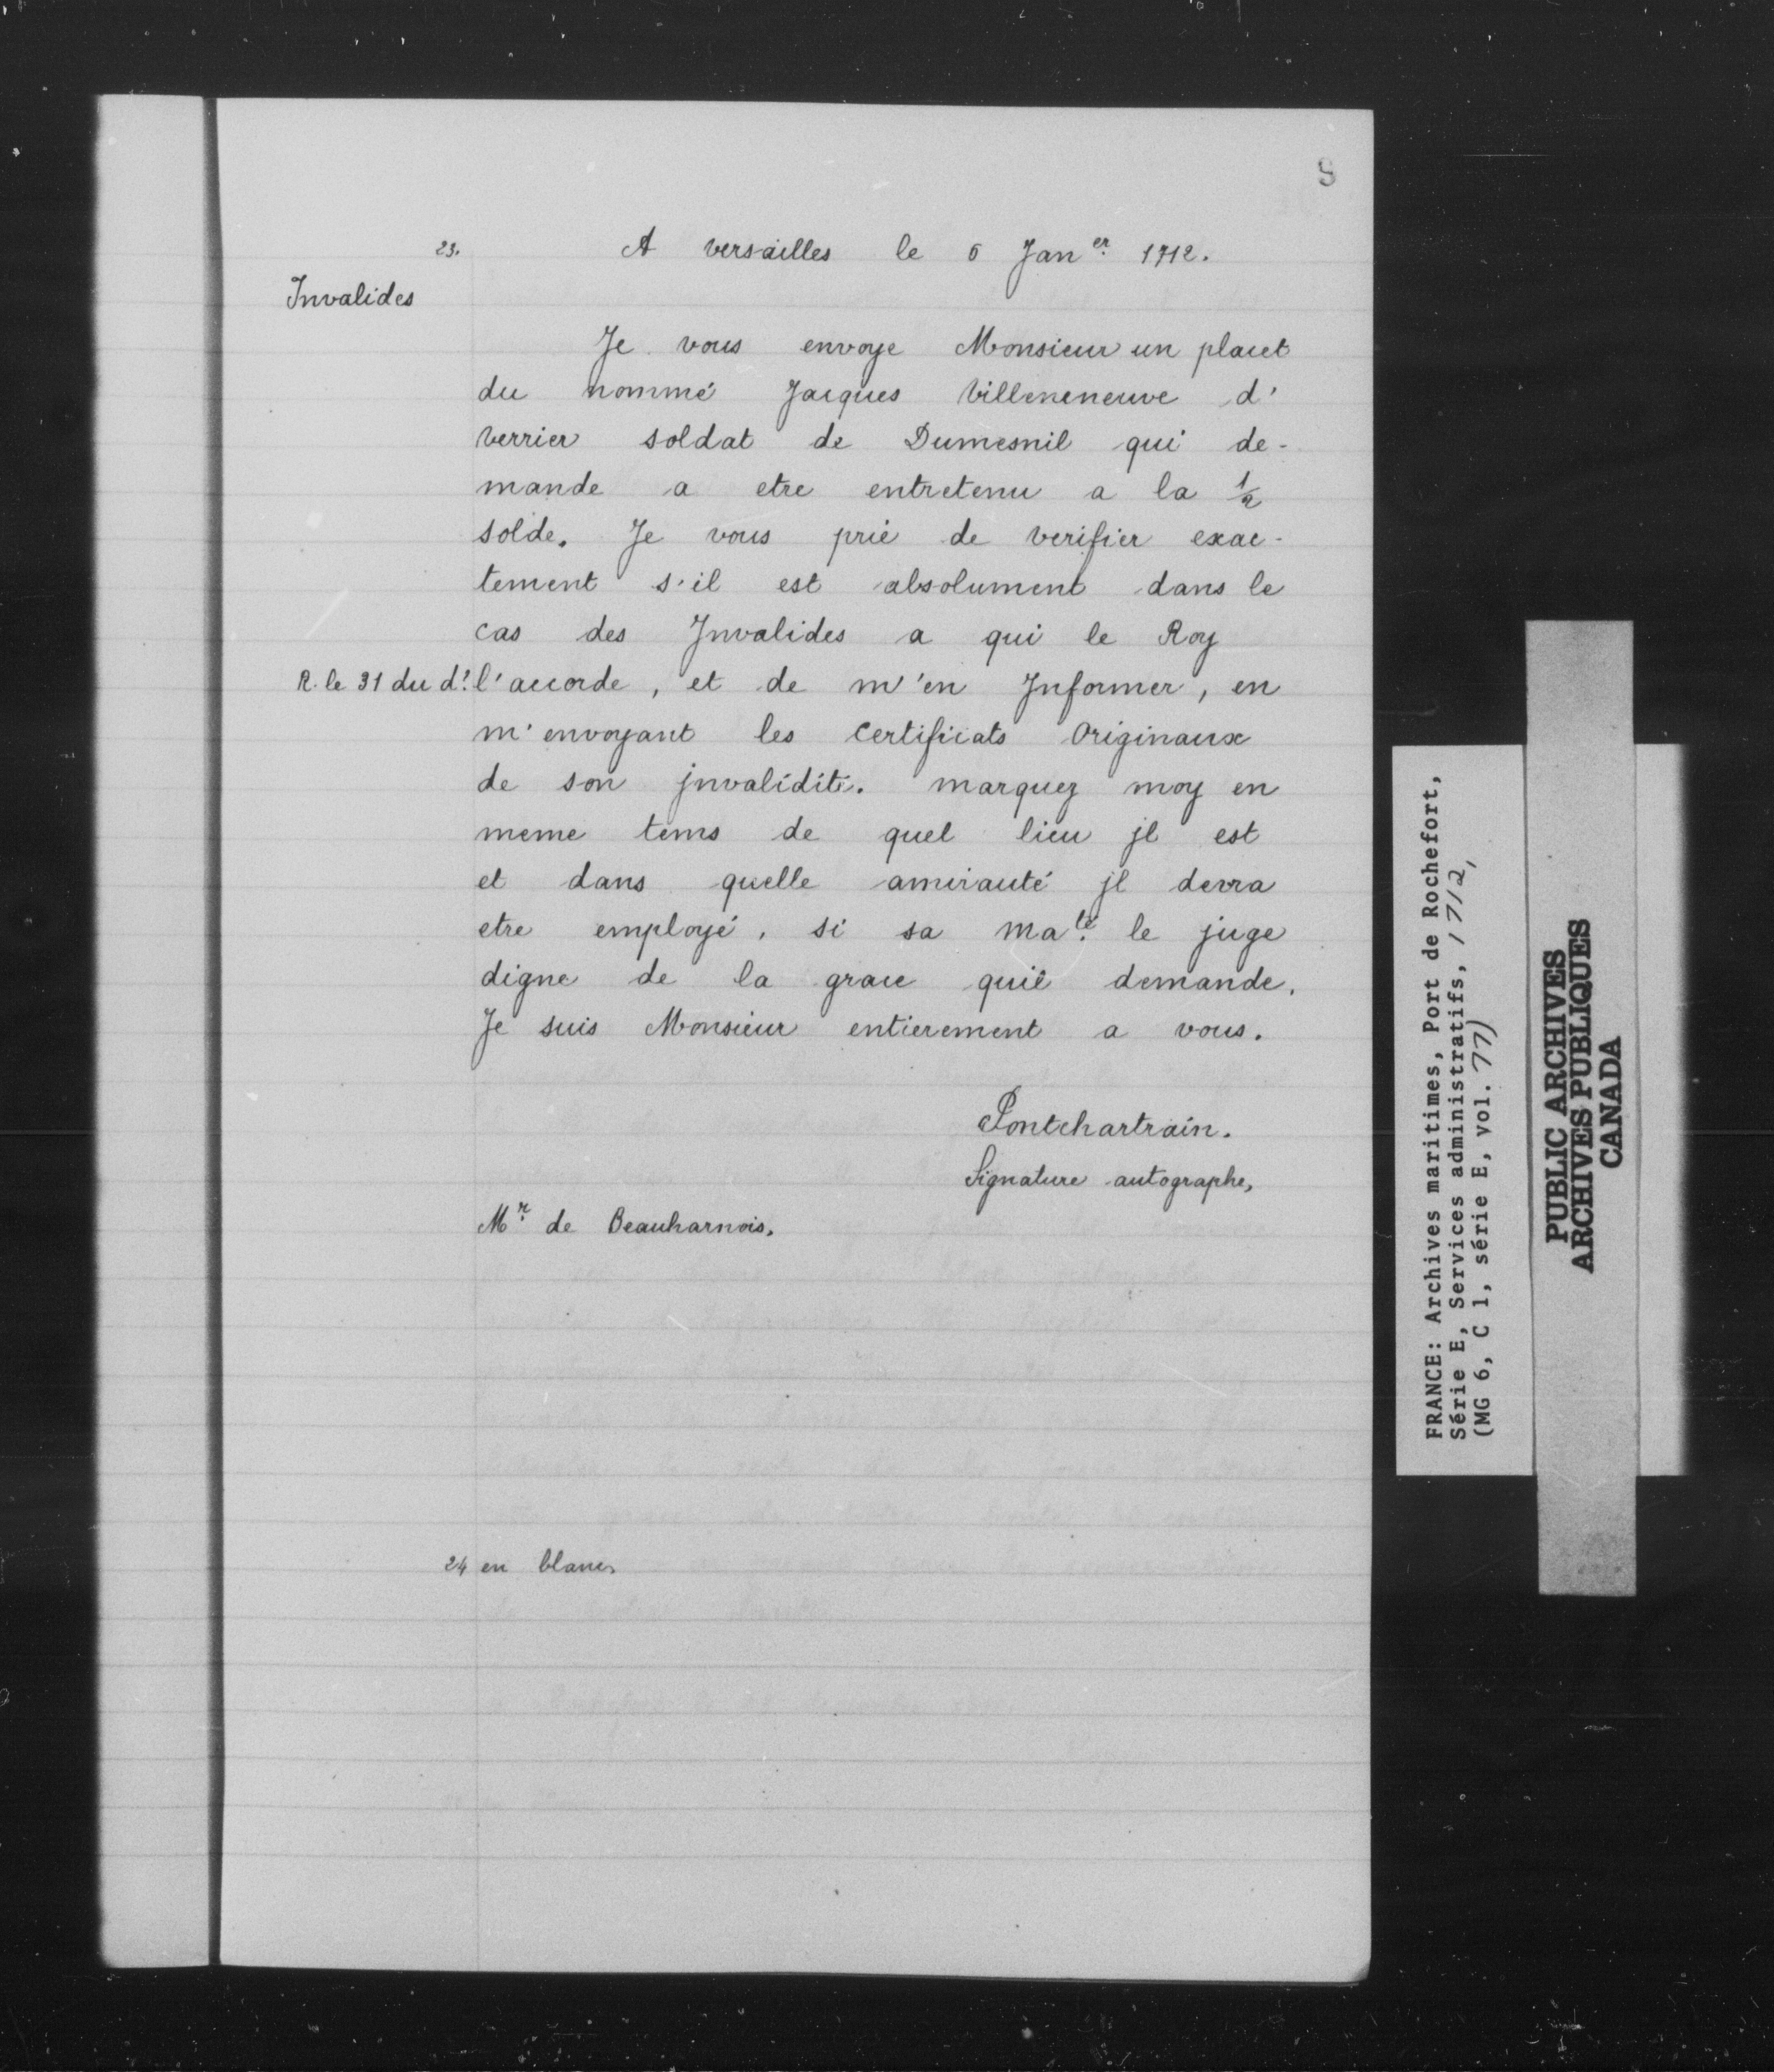 9
23. A versailles le 6 Jan.er 1712.
Invalides
Je vous envoye Monsieur un placet
du nommé Jacques Villeneneuve d'
verrier soldat de Dumesnil qui de-
mande a etre entretenu a la 1/2
solde. Je vous prie de verifier exac-
tement s'il est absolument dans le
cas des Jnvalides a qui le Roy
R. le 31 du d.t l'accorde, et de m'en Jnformer, en
m'envoyant les certificats Originaux
de son jnvalidité. marquez moy en
meme tems de quel lieu jl est
et dans quelle amirauté jl devra
etre employé, si sa ma.té le juge
digne de la grace quil demande.
Je suis Monsieur entierement a vous.
Pontchartrain.
Signature autographe,
M.r de Beauharnois.
24 en blanc
FRANCE: Archives maritimes, Port de Rochefort,
Série E, Services administratifs, 1712,
(MG 6, C 1, série E, vol. 77)
PUBLIC ARCHIVES
ARCHIVES PUBLIQUES
CANADA